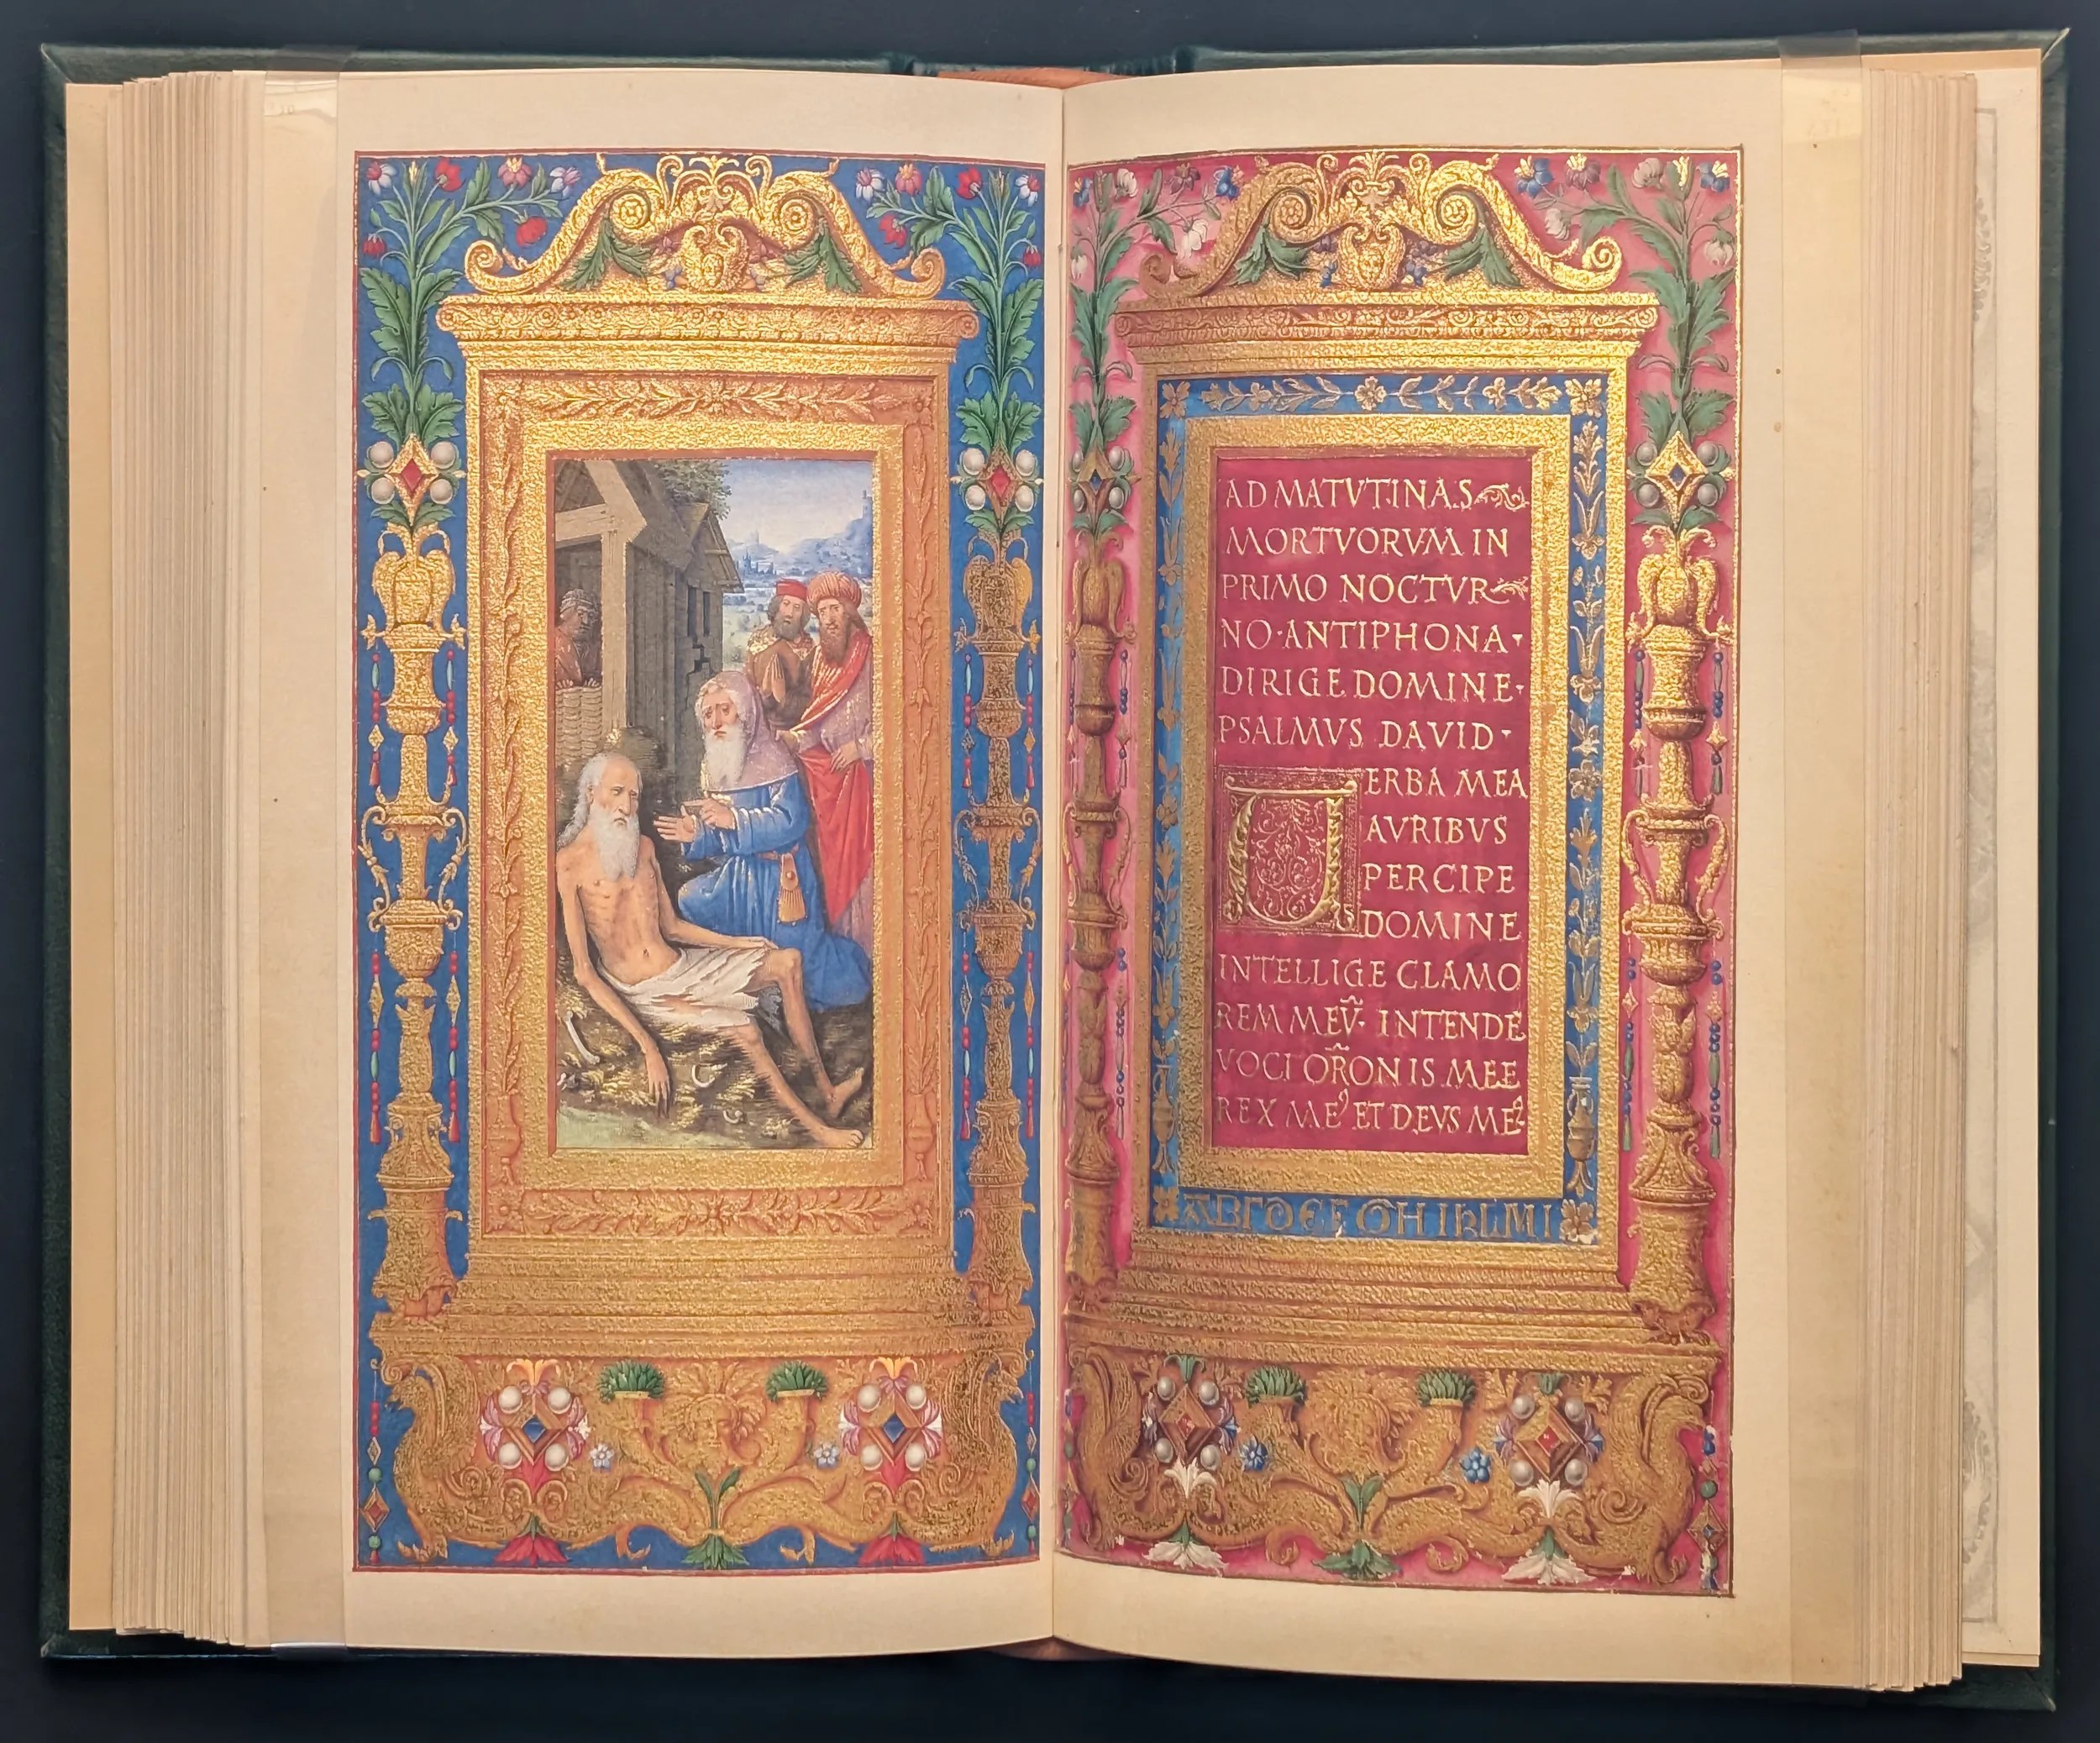 AD MATVTINAS
MORTVORVM IN
PRIMO NOCTVR
NO·ANTIPHONA·
DIRIGE DOMINE·
PSALMVS DAVID·
UERBA MEA
AVRIBVS
PERCIPE
DOMINE
INTELLIGE CLAMO
REM MEṼ· INTENDE
VOCI OR̃ONIS MEE
REX MEꝰ ET DEVS MEꝰ